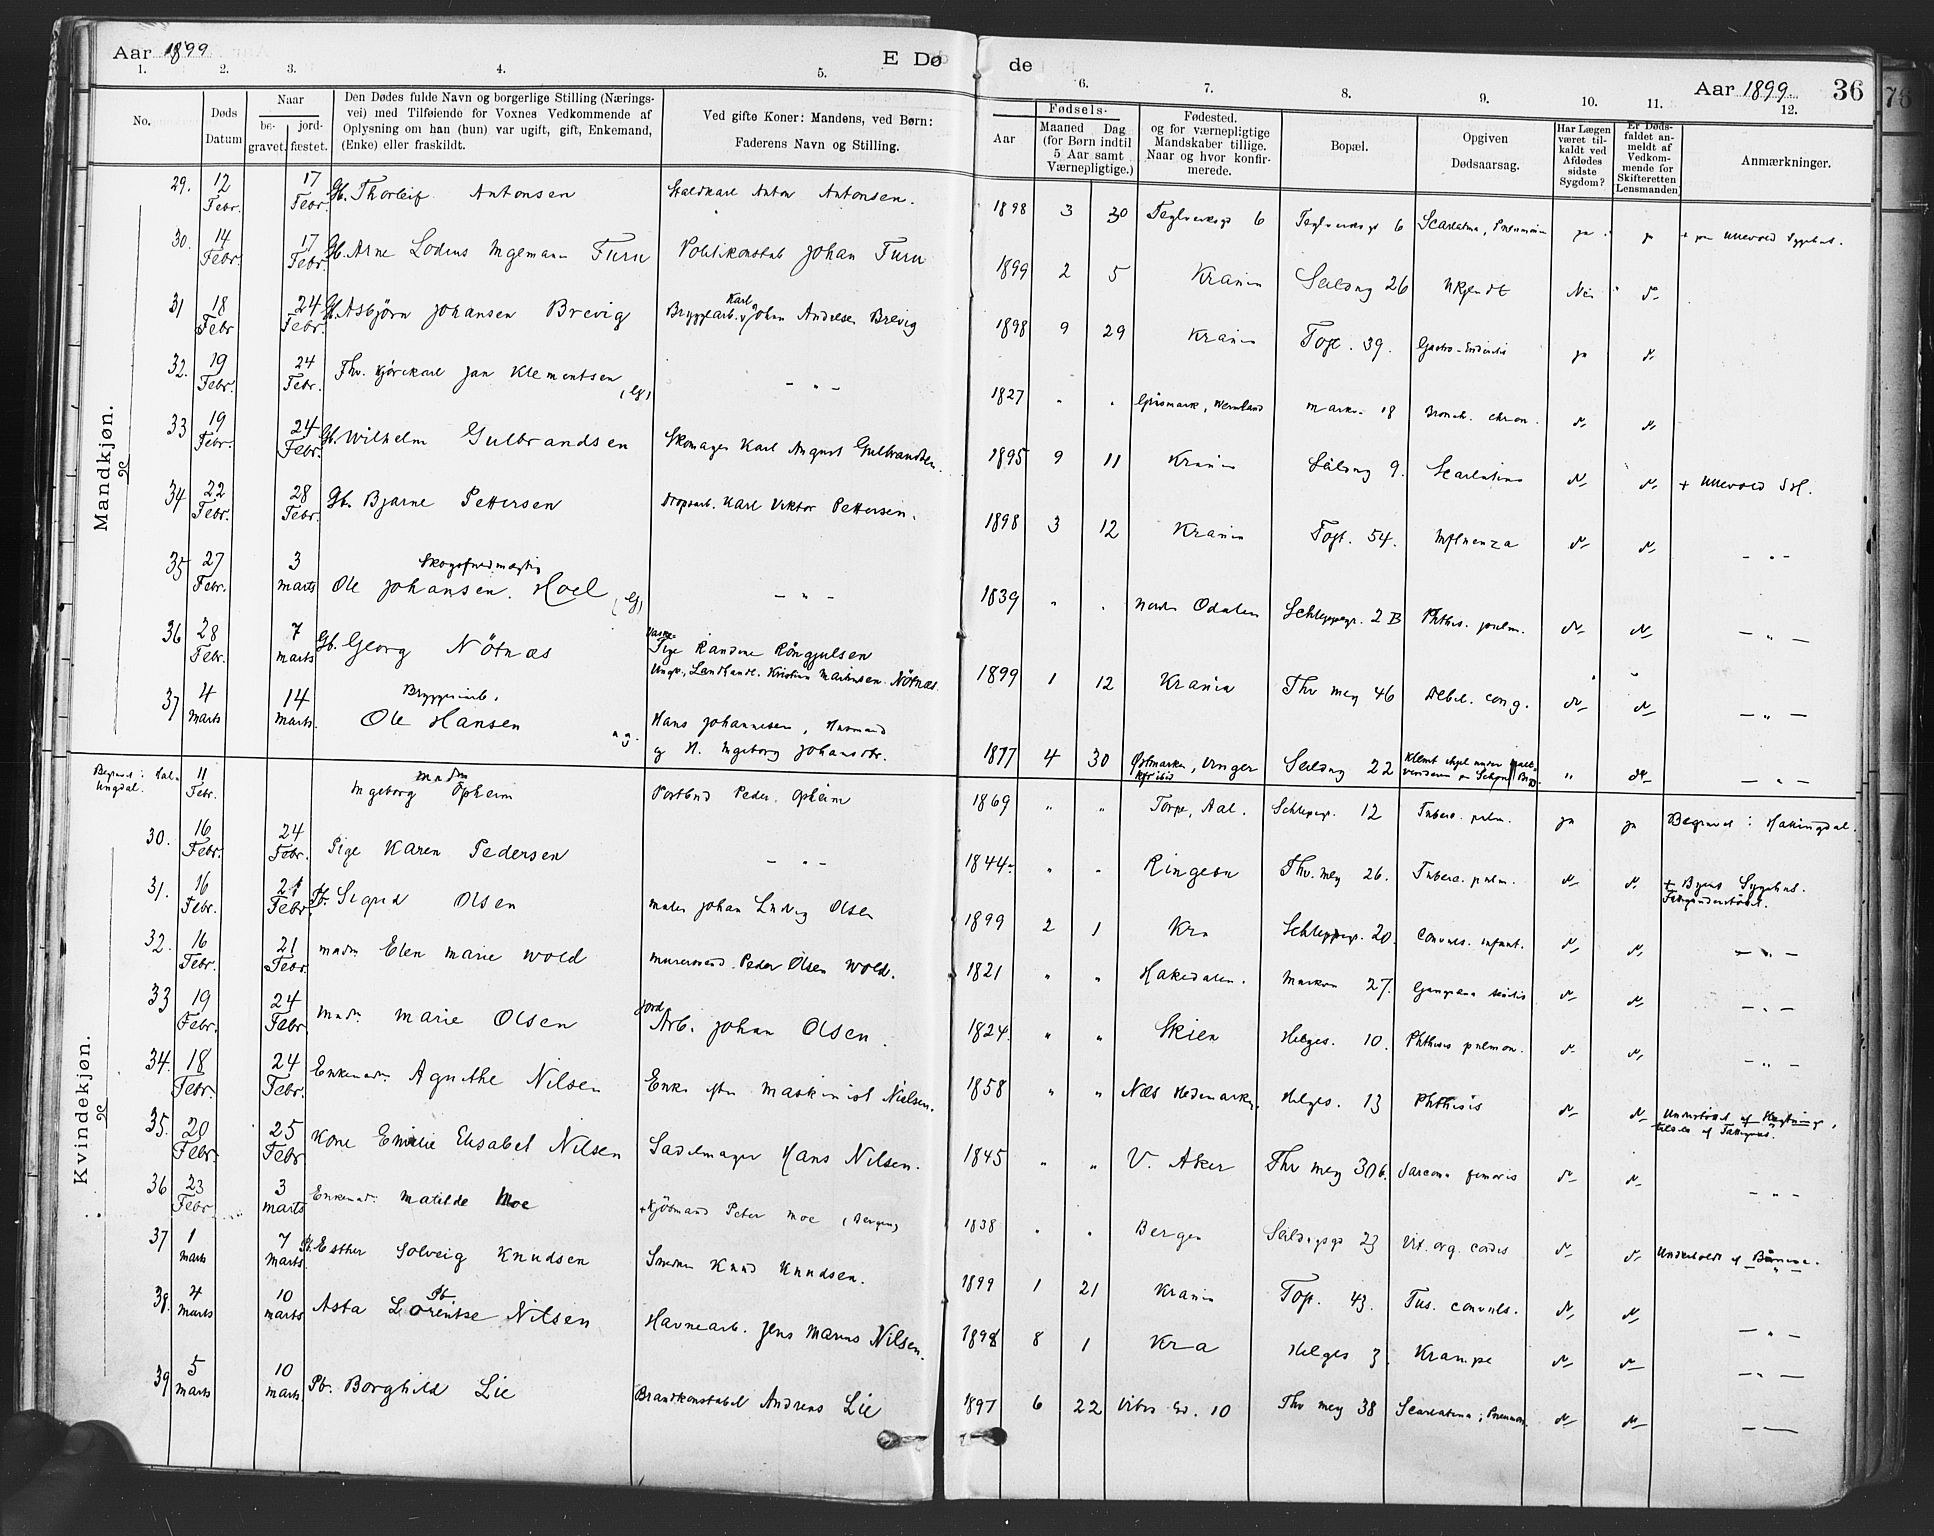 Aar 1899
E Dø
de
Aar 1899.
36
76
1. 2. 3. 4. 5. 6. 7. 8. 9. 10. 11. 12.
No.
Døds Datum
Naar
be- jord-
gravet. fæstet.
Den Dødes fulde Navn og borgerlige Stilling (Nærings-
vei) med Tilføiende for Voxnes Vedkommende af
Oplysning om han (hun) var ugift, gift, Enkemand,
(Enke) eller fraskildt.
Ved gifte Koner: Mandens, ved Børn:
Faderens Navn og Stilling.
Fødsels-
Aar
Maaned Dag
(for Børn indtil
5 Aar samt
Værnepligtige.)
Fødested.
og for værnepligtige
Mandskaber tillige.
Naar og hvor konfir-
merede.
Bopæl.
Opgiven
Dødsaarsag.
Har Lægen
været til-
kaldt ved
Afdødes
sidste
Sygdom?
Er Døds-
faldet an-
meldt af
Vedkom-
mende for
Skifteretten
Lensmanden
Anmærkninger.
Mandkjøn.
29. 12 Febr. 17 Febr. Gb. Thorleif Antonsen Staldkarl Anton Antonsen. 1898 3 30 Teglverksgd 6 Teglverksgd 6 Scarlatina, Pneumoni ja ja + paa Ullevold Sygehus.
30. 14 Febr. 17 Febr. Gb. Arne Lodius Ingemann Furu Politikonstab Johan Furu 1899 2 5 Krania Seildug 26 Ukjendt Nei
31 18 Febr 24 Febr. Gb. Asbjørn Johansen Brevig Bryggearb. Karl Johan Andersen Brevig 1898 9 29 Krania Toft. 39. Gastro-Enteritis ja
32. 19 Febr. 24 Febr. Fhv. Kjørekarl Jan Klementsen (g) — " — 1827 " " Gräsmark, Wermland Markv 18 Bronch. chron.
33 19 Febr. 24 Febr. Gb. Wilhelm Gulbrandsen Skomager Karl August Gulbrandsen. 1895 9 11 Krania Seildug 9. Scarlatina + Ullevold
34 22 Febr. 28 Febr. Gb. Bjarne Pettersen Karl Viktor Pettersen. 1898 3 12 Krania Toft. 54. Influenza — " —
35 27 Febr. 3 Marts Skogsfuldmægtig
Ole Johansen Hoel (g) — " — 1839 " " Nordre Odalen Schleppegr. 2 B Phthis. pulm. — " —
36 28 Febr. 7 Marts Gb. Georg Nötnæs Pige Randine Röngjulsen
Ungk., Landhandl. Kristian Martinsen Nötnæs. 1899 1 12 Krania Thv mey 46 Debil. cong. — " —
37 4 Marts 14 Marts. Bryggeriarb.
Ole Hansen u.g. Hans Johannesen, Husmand
og H. Ingeborg Johansdtr. 1877 4 30 Østmarken, Vinger Seildug 22 — " —
Kvindekjøn.
11 Febr. Madm Ingeborg Opheim Postbud Peder Opheim 1869 " " Torpe, Aal. Schlepegr. 12 Tuberc. pulm. ja ja Begravet i Hallingdal.
30. 16 Febr. 24 Febr. Pige Karen Pedersen — " — 1844 " " Ringebu Thv. mey 26. Tuberc. pulm. + Byens Sygehus.
Fattigunderstöttet.
31. 16 Febr. 21 Febr. Pb. Sigrid Olsen Maler Johan Ludvig Olsen 1899 2 1 Kra Schleppegr. 20. Convuls. infant. — " —
32. 16 Febr. 21 Febr. Madm Elen Marie Wold Murersvend Peder Olsen Wold. 1821 " " Hakedalen. Markv 27. Gangræna senilis — " —
33 19 Febr. 24 Febr. Madm. Marie Olsen Jord
Arb. Johan Olsen. 1824. " " Skien Helges. 10. Phthisis pulmon. — " —
34. 18 Febr. 24 Febr. Enkemad. Agnethe Nilsen Enke efter Maskinist Nielsen. 1858 " " Næs Hedemarken. Helges. 13 Phthisis
35. 20 Febr. 25 Febr Kone Emilie Elisabet Nilsen Sadelmager Hans Nilsen. 1845 " " V. Aker Thv mey 30 b. Sarcoma femoris — " —
36 23 Febr. 3 Marts Enkemad. Matilde Moe + Kjöbmand Peter Moe (Bergen) 1838 " " Bergen Seildugsgd 23 Vit. org. cordis Underholdt af Börnene.
37 1 Marts 7 Marts. Pb. Esther Solveig Knudsen Smeden Knud Knudsen. 1899 1 21 Krania Toft. 43. Tus. convuls. — " —
38. 4 Marts 10 Marts Pb.
Asta Lorentse Nilsen Havnearb. Jens Marius Nilsen. 1898 8 1 Kra Helges 3. Krampe — " —
39 5 Marts 10 Marts Pb. Borghild Lie Brandkonstabel Andreas Lie 1897 6 22 10 Thv mey 38 Scarlatina, Pneumon.